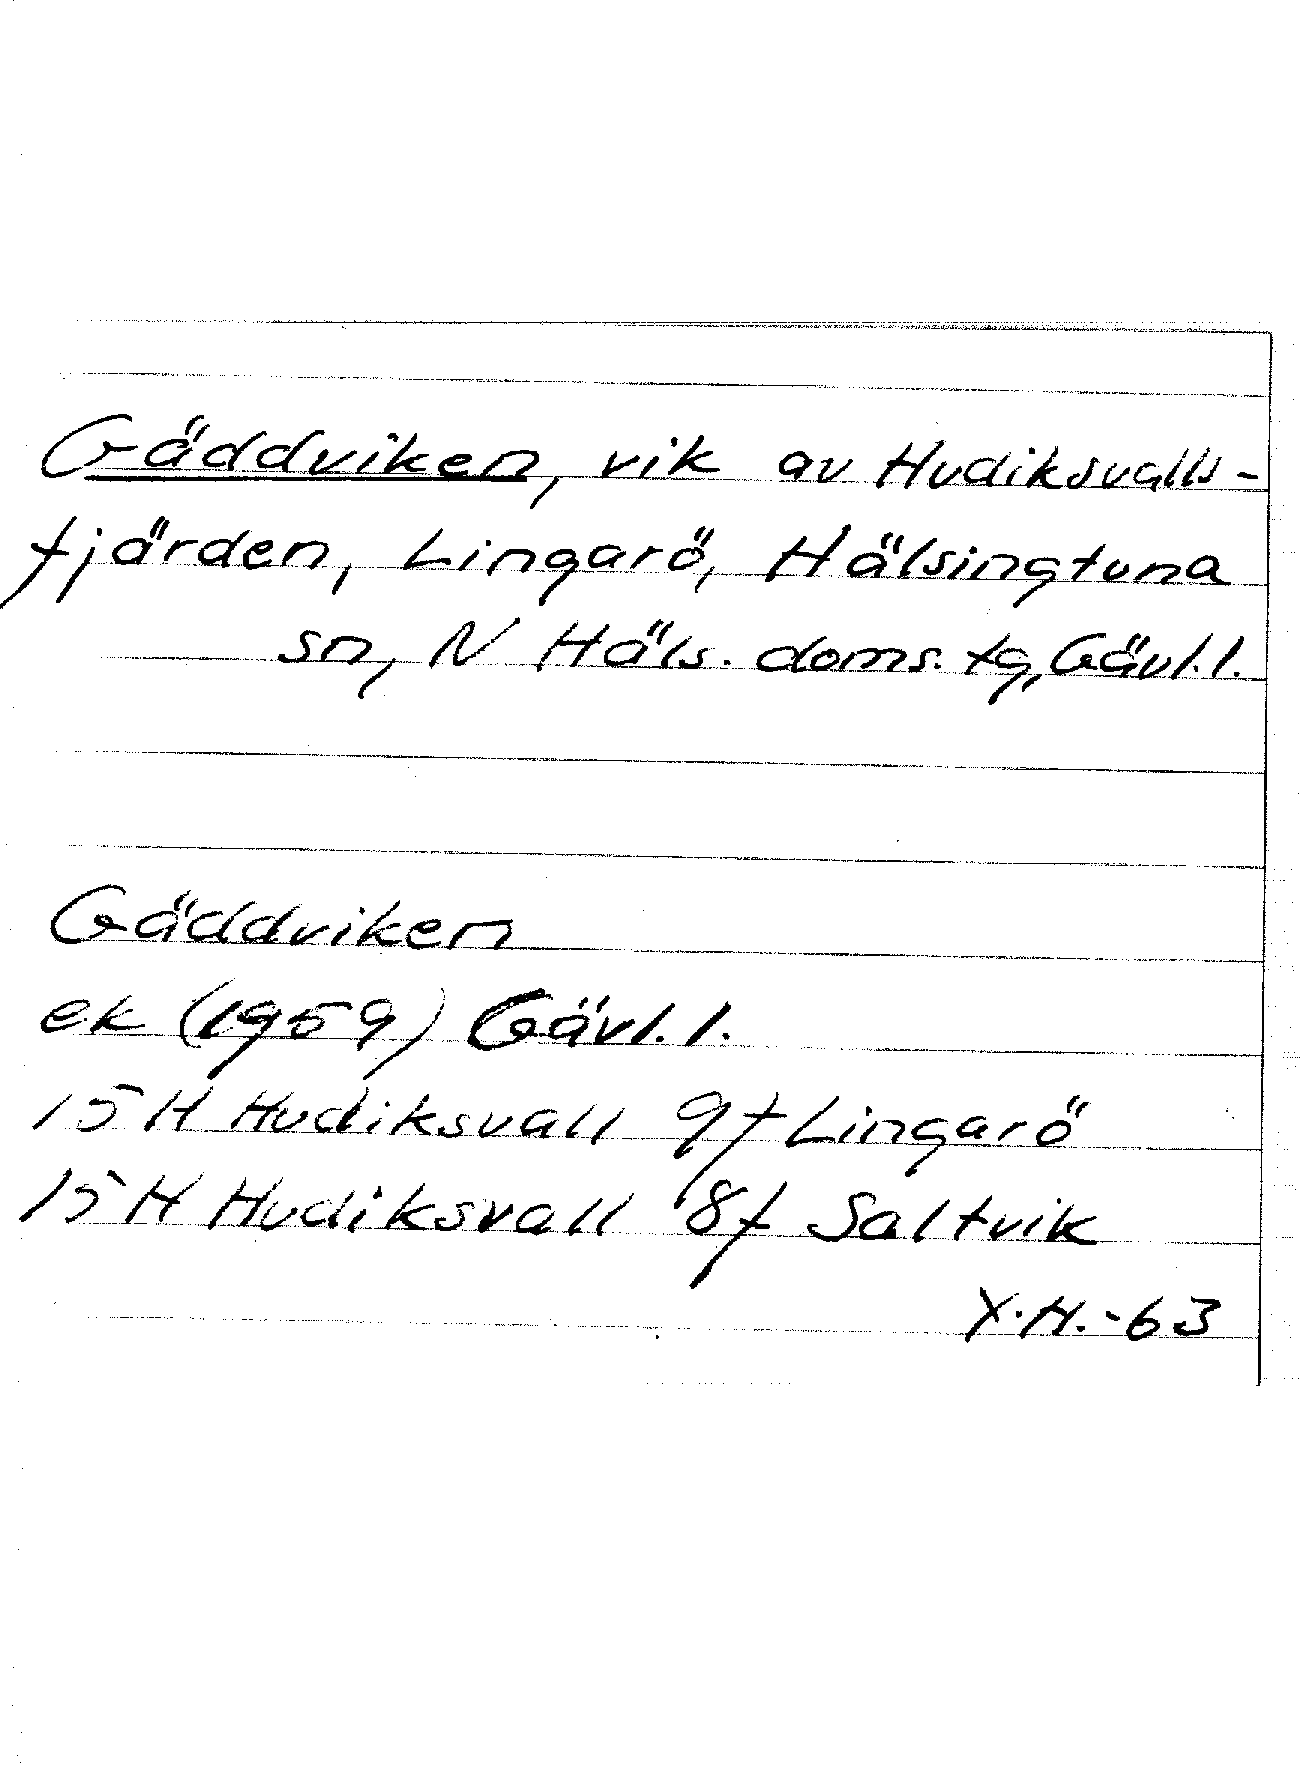 Gäddviken, vik av Hudiksvalls-
fjärden, Lingarö, Hälsingtuna
sn, N Häls. doms. tg, Gävl. l.
Gäddviken
ek (1959) Gävl. l.
15 H Hudiksvall 9f Lingarö
15 H Hudiksvall 8f Saltvik
Y.H.-63